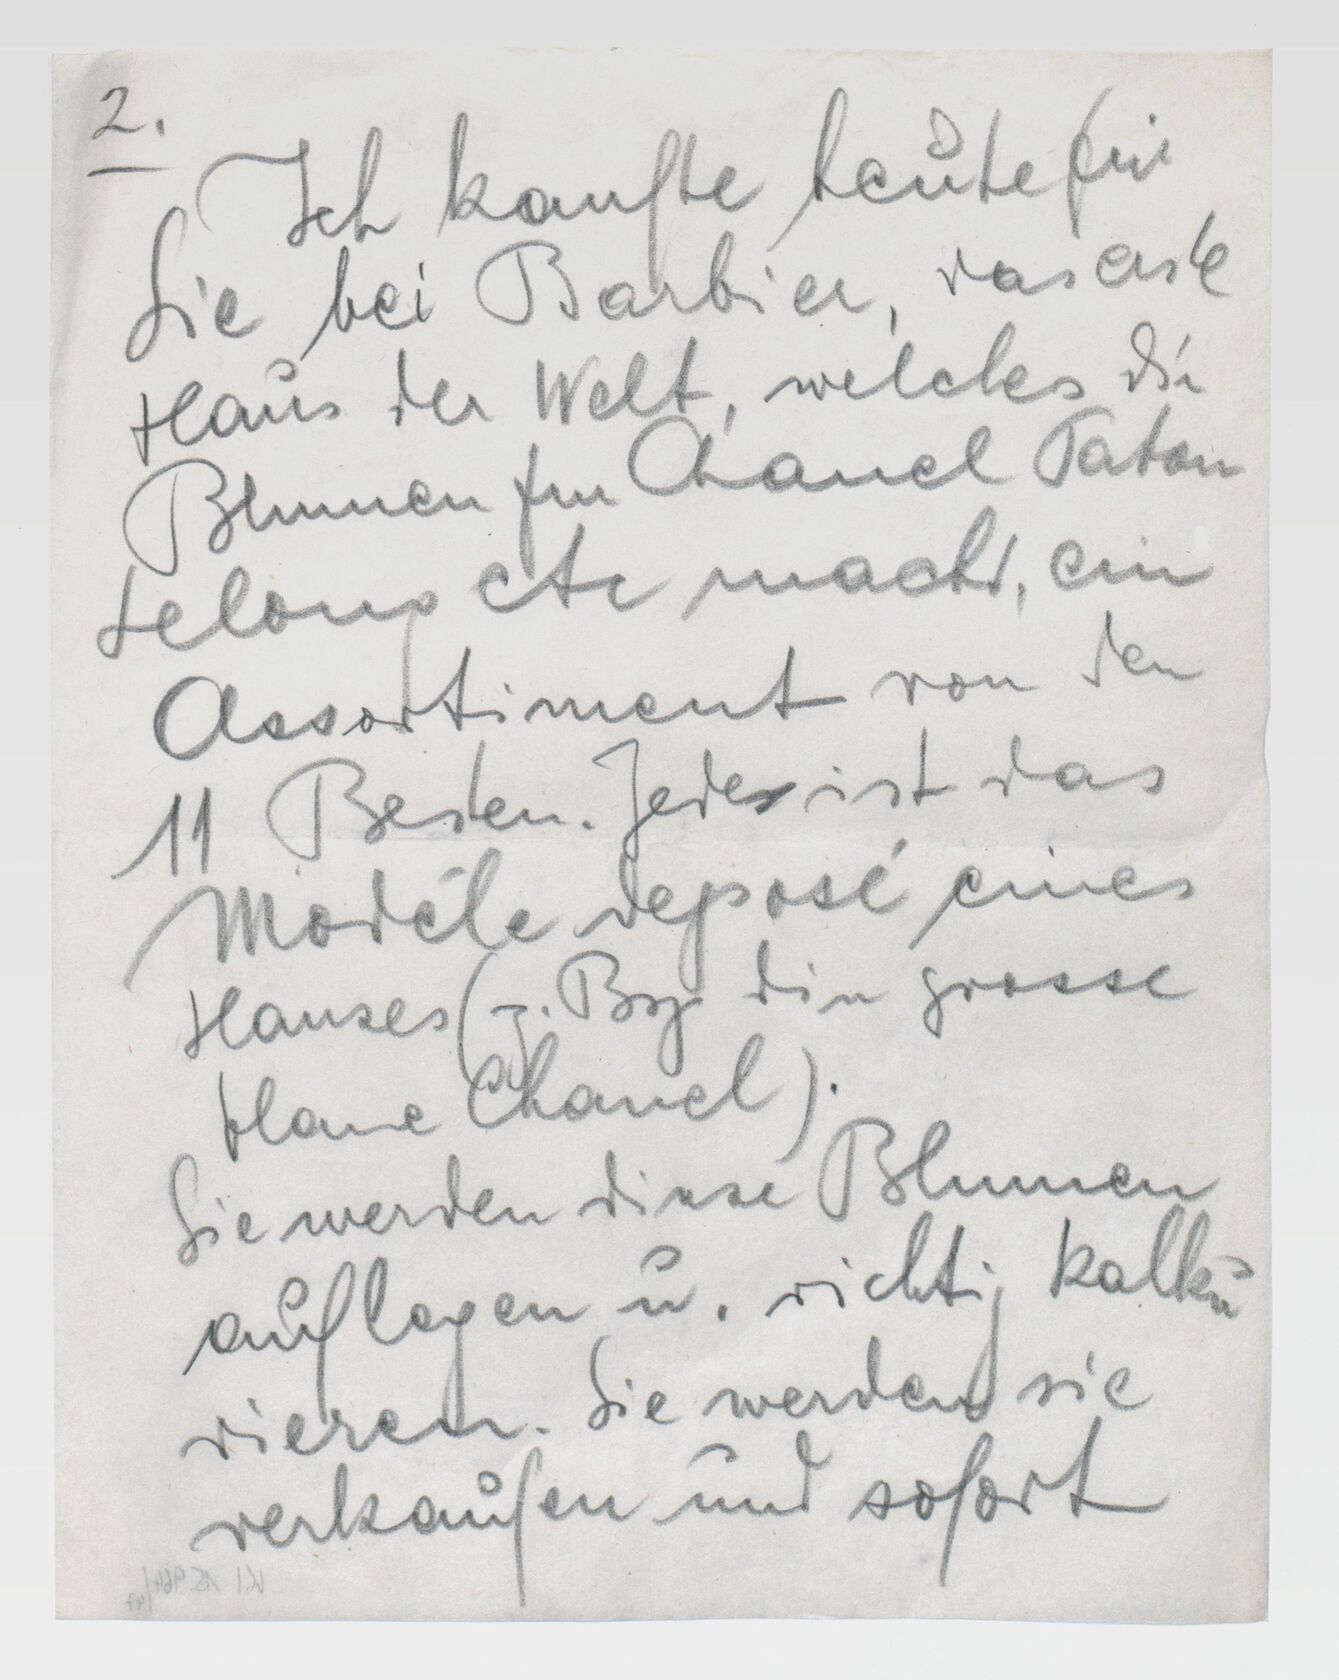 2.
Ich kaufte heute für
Sie bei Barbier, das erste
Haus der Welt, welches die
Blumen für Chanel Patou
Lelong etc macht, ein
Assortiment von den
11 Besten. Jedes ist das
Modèle deposé eines
Hauses (z. Bsp. die grosse
blaue Chanel).
Sie werden diese Blumen
auflegen u. richtig kalku
lieren. Sie werden sie
verkaufen und sofort